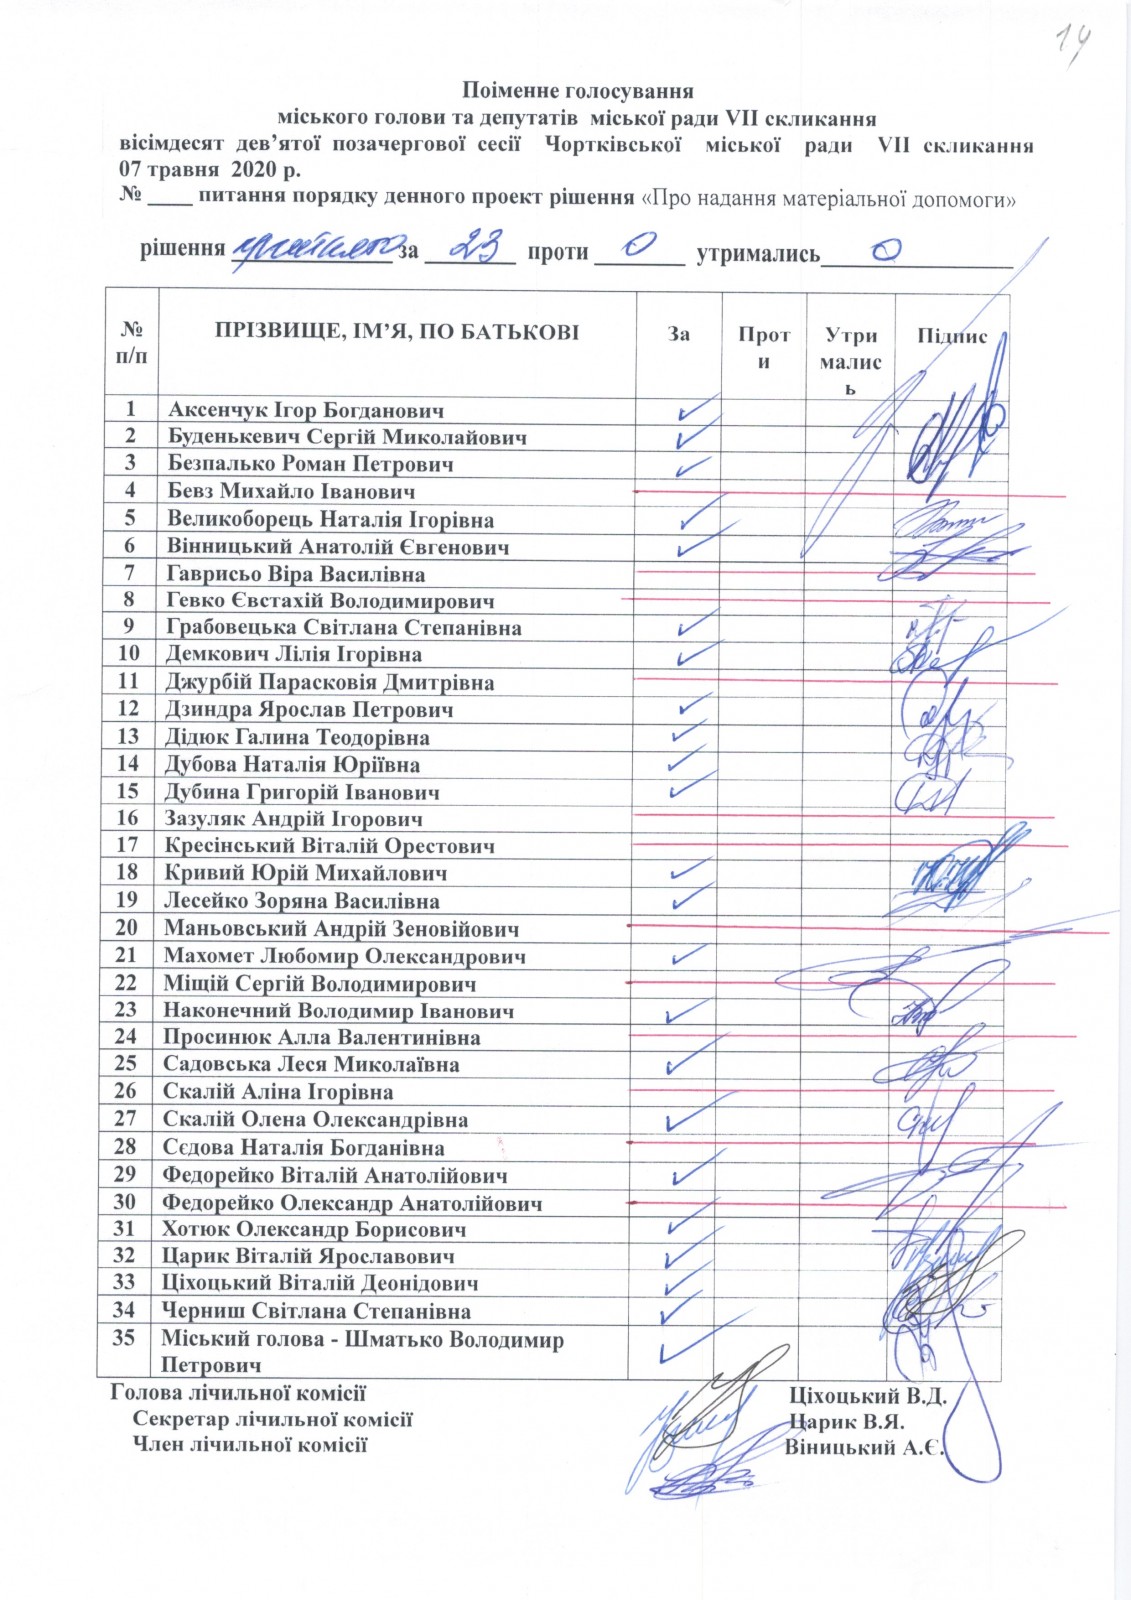 14
Поіменне голосування
міського голови та депутатів міської ради VII скликання
вісімдесят дев’ятої позачергової сесії Чортківської міської ради VII скликання
07 травня 2020 р.
№ ____ питання порядку денного проект рішення «Про надання матеріальної допомоги»
рішення прийнято за 23 проти 0 утримались 0
№ п/п ПРІЗВИЩЕ, ІМ’Я, ПО БАТЬКОВІ За Проти Утрималисъ Підпис
1 Аксенчук Ігор Богданович
2 Буденькевич Сергій Миколайович
3 Безпалько Роман Петрович
4 Бевз Михайло Іванович
5 Великоборець Наталія Ігорівна
6 Вінницький Анатолій Євгенович
7 Гаврисьо Віра Василівна
8 Гевко Євстахій Володимирович
9 Грабовецька Світлана Степанівна
10 Демкович Лілія Ігорівна
11 Джурбій Парасковія Дмитрівна
12 Дзиндра Ярослав Петрович
13 Дідюк Галина Теодорівна
14 Дубова Наталія Юріївна
15 Дубина Григорій Іванович
16 Зазуляк Андрій Ігорович
17 Кресінський Віталій Орестович
18 Кривий Юрій Михайлович
19 Лесейко Зоряна Василівна
20 Маньовський Андрій Зеновійович
21 Махомет Любомир Олександрович
22 Міщій Сергій Володимирович
23 Наконечний Володимир Іванович
24 Просинюк Алла Валентинівна
25 Садовська Леся Миколаївна
26 Скалій Аліна Ігорівна
27 Скалій Олена Олександрівна
28 Сєдова Наталія Богданівна
29 Федорейко Віталій Анатолійович
30 Федорейко Олександр Анатолійович
31 Хотюк Олександр Борисович
32 Царик Віталій Ярославович
33 Ціхоцький Віталій Деонідович
34 Черниш Світлана Степанівна
35 Міський голова - Шматько Володимир
Петрович
Голова лічильної комісії Ціхоцький В.Д.
Секретар лічильної комісії Царик В.Я.
Член лічильної комісії Віницький А.Є.